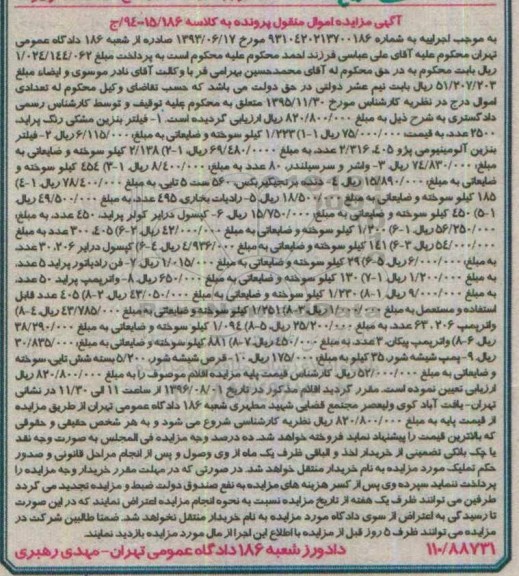 آگهی مزایده اموال منقول پرونده به کلاسه ۱۵/۱۸۶-۹۴/ج
به موجب اجراییه به شماره ۹۳۱۰۴۲۰۲۱۳۷۰۰۱۸۶ مورخ ۱۳۹۳/۰۶/۱۷ صادره از شعبه ۱۸۶ دادگاه عمومی
تهران محکوم علیه آقای علی عباسی فرزند احمد محکوم علیه محکوم است به پرداخت مبلغ ۱/۰۲۴/۱۴۴/۰۶۲
ریال بابت محکوم به در حق محکوم له آقای محمدحسین بهرامی فر با وکالت آقای نادر موسوی و ایضاء مبلغ
۵۱/۲۰۷/۲۰۳ ریال بابت نیم عشر دولتی در حق دولت می باشد که حسب تقاضای وکیل محکوم له تعدادی
اموال درج در نظریه کارشناس مورخ ۱۳۹۵/۱۱/۳۰ متعلق به محکوم علیه توقیف و توسط کارشناس رسمی
دادگستری به شرح ذیل به مبلغ ۸۲۰/۸۰۰/۰۰۰ ریال ارزیابی گردیده است. ۱- فیلتر بنزین مشکی رنگ پراید،
۲۵۰۰ عدد به قیمت ۷۵/۰۰۰/۰۰۰ ریال ۱-۱) ۱/۲۲۳ کیلو سوخته و ضایعاتی به مبلغ ۶/۱۱۵/۰۰۰ ریال. ۲- فیلتر
بنزین آلومینیومی پژو ۴۰۵، ۲/۳۱۶ عدد، به مبلغ ۶۹/۴۸۰/۰۰۰ ریال ۱-۲) ۲/۱۳۸ کیلو سوخته و ضایعاتی به
مبلغ ۷۴/۸۳۰/۰۰۰ ریال. ۳- واشر و سرسیلندر، ۸۰ عدد به مبلغ ۸/۴۰۰/۰۰۰ ریال. ۱-۳) ۴۵۴ کیلو سوخته و
ضایعاتی به مبلغ ۱۵/۸۹۰/۰۰۰ ریال ۴- دنده برنجیگیربکس، ۵۶۰ ست ۵ تایی به مبلغ ۷۸/۴۰۰/۰۰۰ ریال ۱-۴)
۱۸۵ کیلو سوخته و ضایعاتی به مبلغ ۱۸/۵۰۰/۰۰۰ ریال ۵- رادیات بخاری، ۴۹۵ عدد به مبلغ ۴۹/۵۰۰/۰۰۰ ریال
۱-۵) ۴۵۰ کیلو سوخته و ضایعاتی به مبلغ ۱۵/۷۵۰/۰۰۰ ریال ۶- کپسول درایر کولر پراید، ۴۵۰ عدد به مبلغ
۵۶/۲۵۰/۰۰۰ ریال ۱-۶) ۱/۳۰۰ کیلو سوخته و ضایعاتی به مبلغ ۴۲/۰۰۰/۰۰۰ ریال ۲-۶) ۴۰۵، ۳۰۰ عدد به مبلغ
۵۴/۰۰۰/۰۰۰ ریال ۳-۶) ۱۴۱ کیلو سوخته و ضایعاتی به مبلغ ۴/۹۳۶/۰۰۰ ریال ۴-۶) کپسول درایر ۲۰۶، ۳۰ عدد
به مبلغ ۶/۰۰۰/۰۰۰ ریال ۵-۶) ۲۹ کیلو سوخته و ضایعاتی به مبلغ ۱/۰۱۵/۰۰۰ ریال ۷- فن رادیاتور پراید ۵ عدد
به مبلغ ۱/۲۰۰/۰۰۰ ریال ۱-۷) ۱۳۰ کیلو سوخته و ضایعاتی به مبلغ ۶۵۰/۰۰۰ ریال. ۸- واترپمپ پراید ۵۰ عدد
به مبلغ ۹/۰۰۰/۰۰۰ ریال ۱-۸) ۱/۲۳۰ کیلو سوخته و ضایعاتی به مبلغ ۴۳/۰۵۰/۰۰۰ ریال ۲-۸) ۴۰۵ عدد قابل
استفاده و مستعمل به مبلغ ریال ۳-۸) ۱/۲۵۱ کیلو سوخته و ضایعاتی به مبلغ ۴۳/۷۸۵/۰۰۰ ریال ۴-۸)
واترپمپ ۲۰۶، ۶۳ عدد به مبلغ ۲۵/۲۰۰/۰۰۰ ریال ۵-۸) ۱/۰۹۴ کیلو سوخته و ضایعاتی به مبلغ ۳۸/۲۹۰/۰۰۰
ریال ۶-۸) واترپمپ پیکان، ۳ عدد به مبلغ ۴۵۰/۰۰۰ ریال ۷-۸) ۸۸۱ کیلو سوخته و ضایعاتی به مبلغ ۳۰/۸۳۵/۰۰۰
ریال ۹- پمپ شیشه شور، ۳۵ کیلو به مبلغ ۱۷۵/۰۰۰ ریال ۱۰- قرص شیشه شور، ۵/۲۰۰ بسته شش تایی سوخته
و ضایعاتی به مبلغ ۵۲/۰۰۰/۰۰۰ ریال. کارشناس قیمت پایه مزایده اقلام موصوف را به مبلغ ۸۲۰/۸۰۰/۰۰۰ ریال
ارزیابی تعیین نموده است. مقرر گردید اقلام مذکور در تاریخ ۱۳۹۶/۰۸/۰۱ از ساعت ۱۱ الی ۱۱/۳۰ در نشانی
تهران- یافت آباد کوی ولیعصر مجتمع قضایی شهید مطهری شعبه ۱۸۶ دادگاه عمومی تهران از طریق مزایده
از قیمت پایه به مبلغ ۸۲۰/۸۰۰/۰۰۰ ریال نظریه کارشناسی شروع می شود و به هر شخص حقیقی و حقوقی
که بالاترین قیمت را پیشنهاد نماید فروخته خواهد شد. ده درصد وجه مزایده فی المجلس به صورت وجه نقد
یا چک بانکی تضمینی از خریدار اخذ و الباقی ظرف یک ماه از وی وصول و پس از انجام مراحل قانونی و صدور
حکم تملیک مورد مزایده به نام خریدار منتقل خواهد شد. در صورتی که در مهلت مقرر خریدار وجه مزایده را
پرداخت ننماید سپرده وی پس از کسر هزینه های مزایده به نفع صندوق دولت ضبط و مزایده تجدید می گردد
طرفین می توانند ظرف یک هفته از تاریخ مزایده نسبت به نحوه انجام مزایده اعتراض نمایند که در این صورت
تا رسیدگی به اعتراض از سوی دادگاه مورد مزایده به نام خریدار منتقل نخواهد شد. ضمنا طالبین شرکت در
مزایده می توانند ظرف ۵ روز قبل از مزایده با اطلاع این اجرا از مال مورد مزایده بازدید نمایند.
۱۱۰/۸۸۷۳۱ دادورز شعبه ۱۸۶ دادگاه عمومی تهران - مهدی رهبری